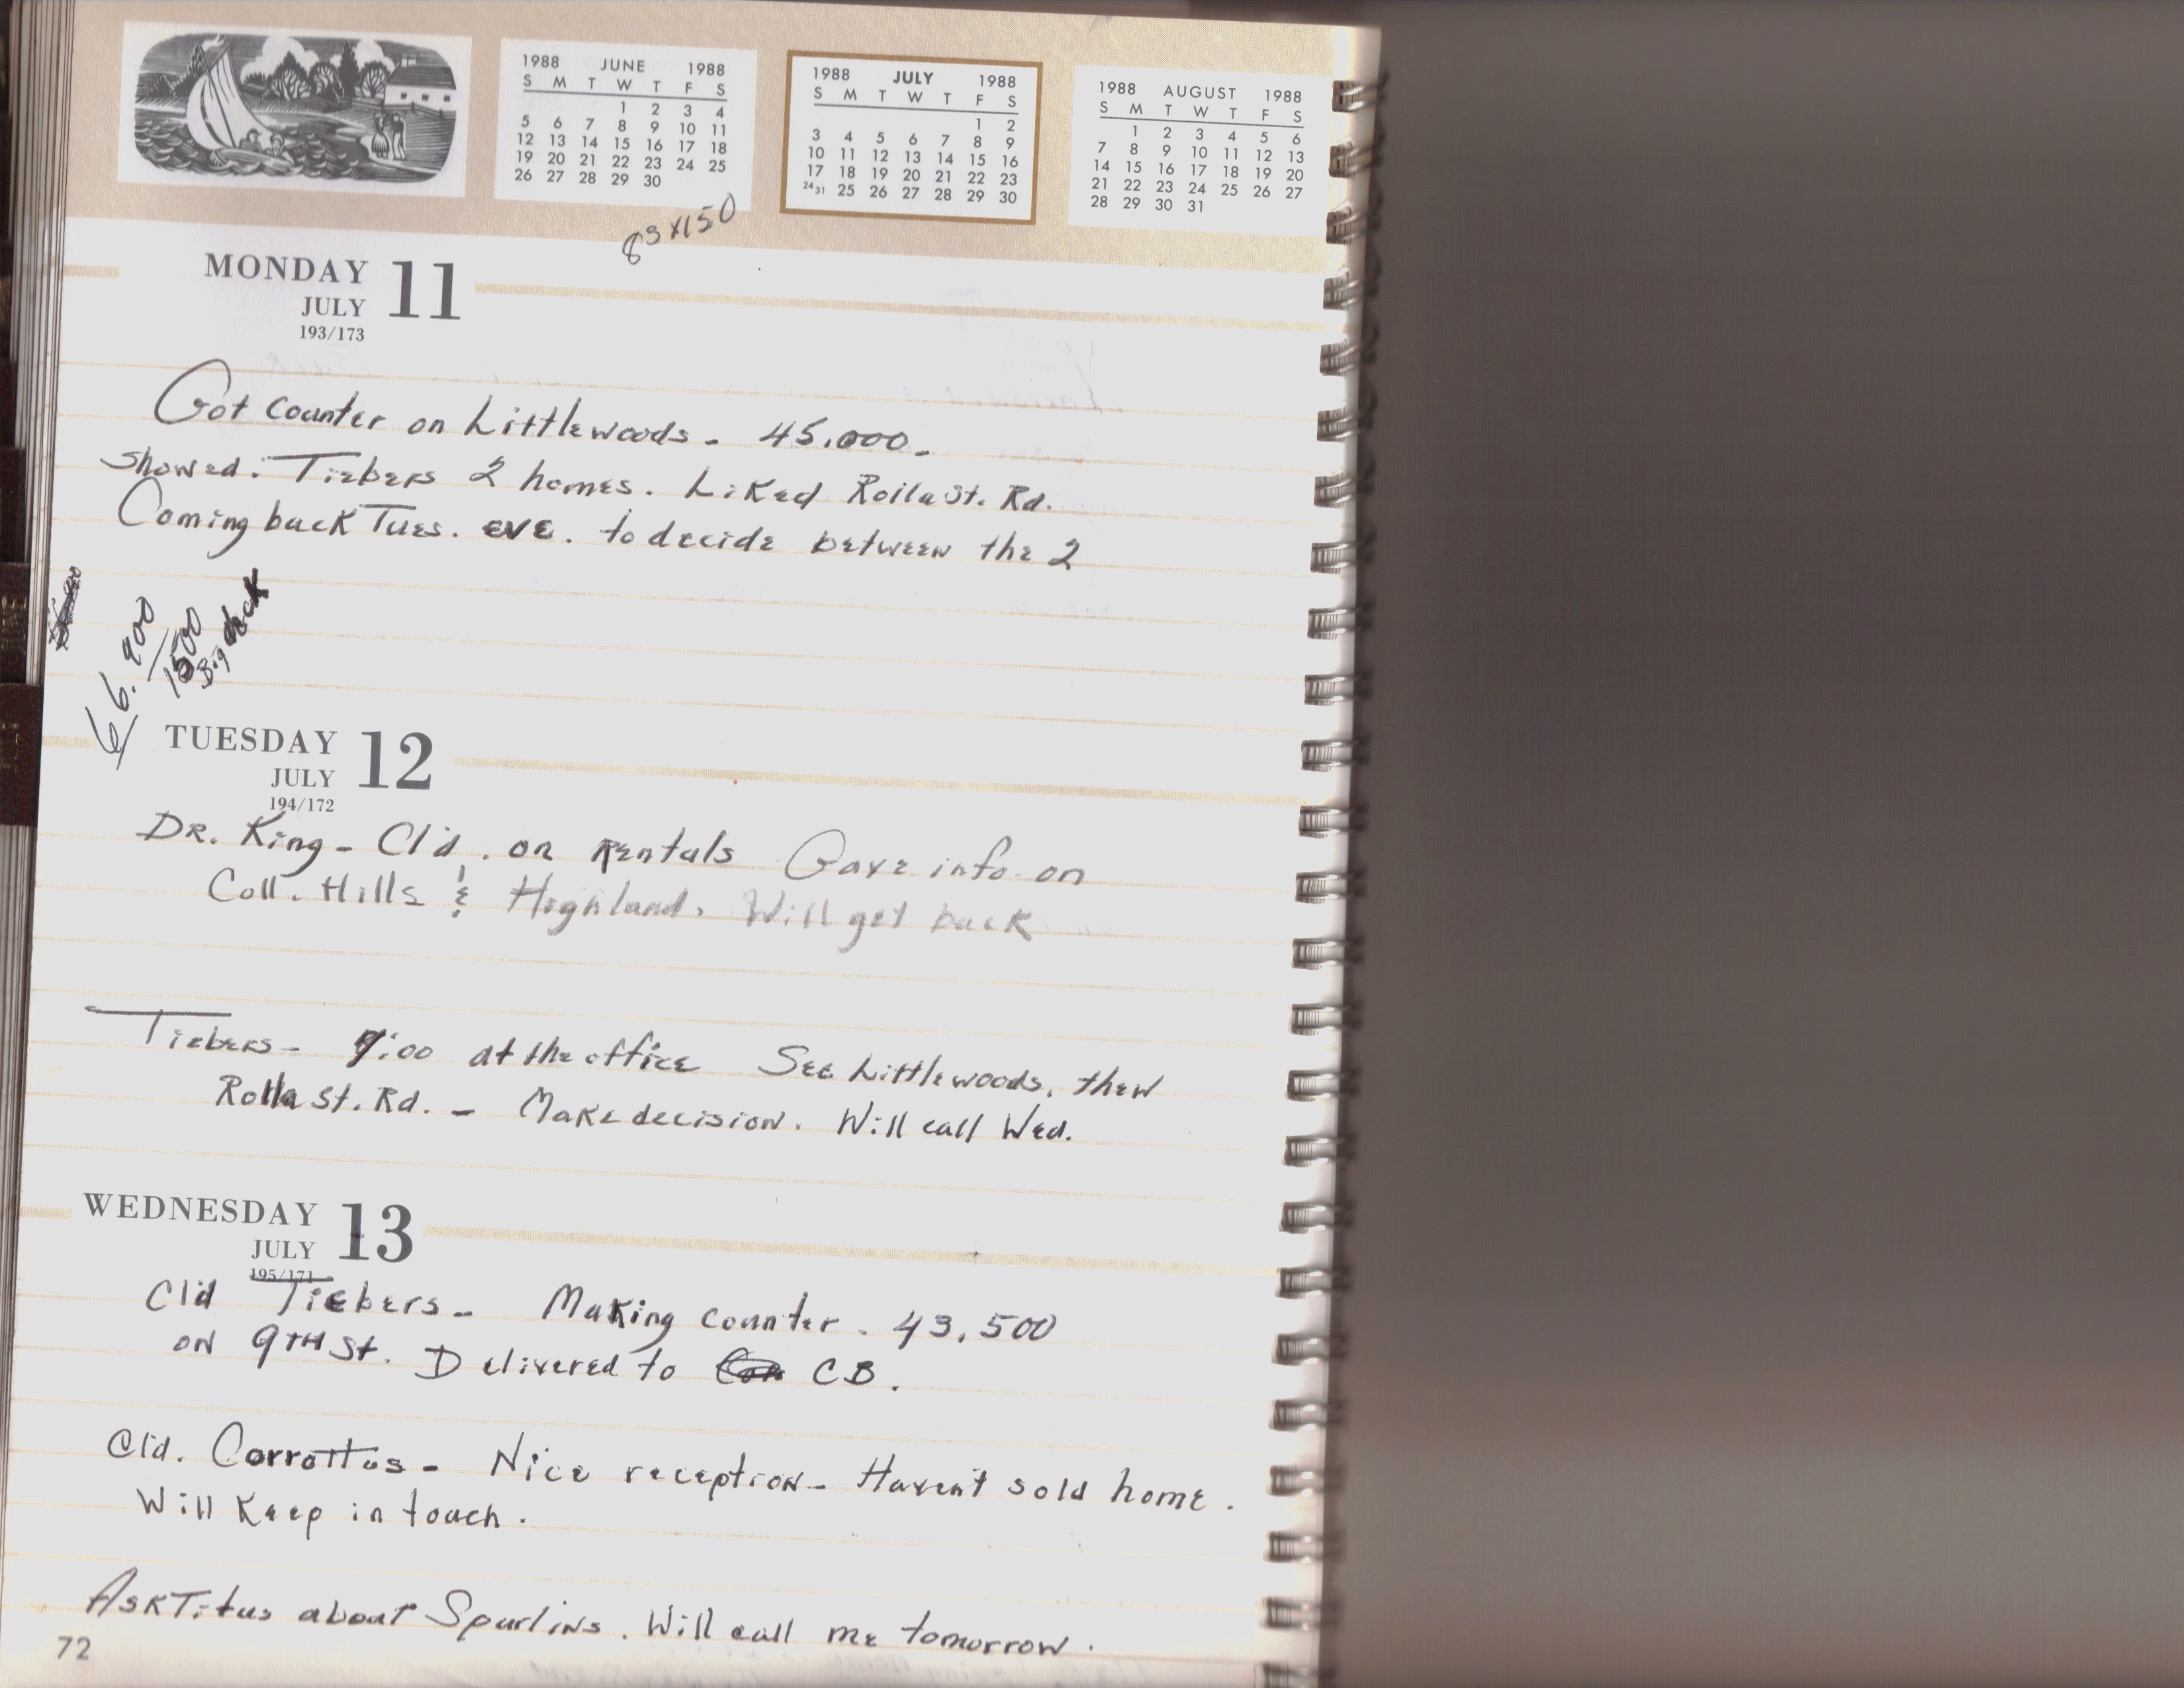 1988 JUNE 1988
S M T W T F S
1 2 3 4
5 6 7 8 9 10 11
12 13 14 15 16 17 18
19 20 21 22 23 24 25
26 27 28 29 30
1988 JULY 1988
S M T W T F S
1 2
3 4 5 6 7 8 9
10 11 12 13 14 15 16
17 18 19 20 21 22 23
24 31 25 26 27 28 29 30
1988 AUGUST 1988
S M T W T F S
1 2 3 4 5 6
7 8 9 10 11 12 13
14 15 16 17 18 19 20
21 22 23 24 25 26 27
28 29 30 31
83 x 150
MONDAY 11
JULY
193/173
Got counter on Littlewoods - 45,000.
Showed. Tiebers 2 homes. Liked Rolla St. Rd.
Coming back Tues. eve. to decide between the 2
66,900
1500
Big deck
TUESDAY 12
JULY
194/172
Dr. King - Cl'd. on Rentals Gave info on
Coll. Hills & Highland. Will get back
Tiebers - 7:00 at the office See Littlewoods, then
Rolla St. Rd. - Make decision. Will call Wed.
WEDNESDAY 13
JULY
195/171
Cld Tiebers - Making counter. 43,500
on 9TH St. Delivered to CB.
Cld. Corrottos - Nice reception - Haven't sold home.
Will Keep in touch.
Ask Titus about Spurlins. Will call me tomorrow.
72
JUNE
JULY